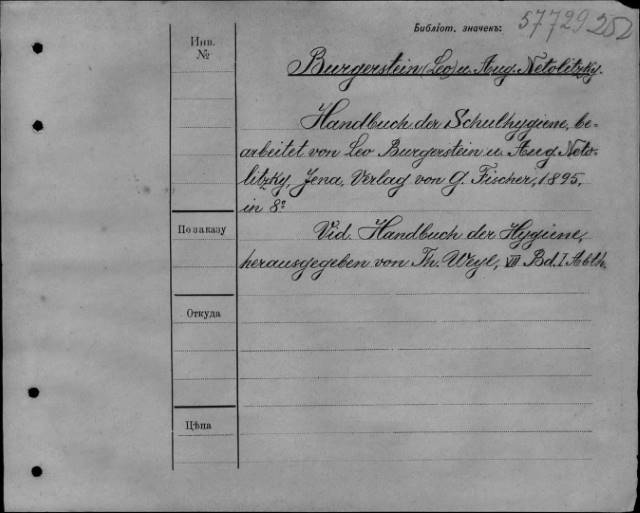 Библіот. значекъ: 57729 252
Инв.
№
Burgerstein (Leo) u. Aug. Netolitzky.
Handbuch der Schulhygiene, be-
arbeitet von Leo Burgerstein u. Aug. Neto-
litzky, Jena, Verlag von G. Fischer, 1895,
in 8º
По заказу
Vid. Handbuch der Hygiene,
herausgegeben von Th. Weyl, VII Bd. I Abth.
Откуда
Цѣна